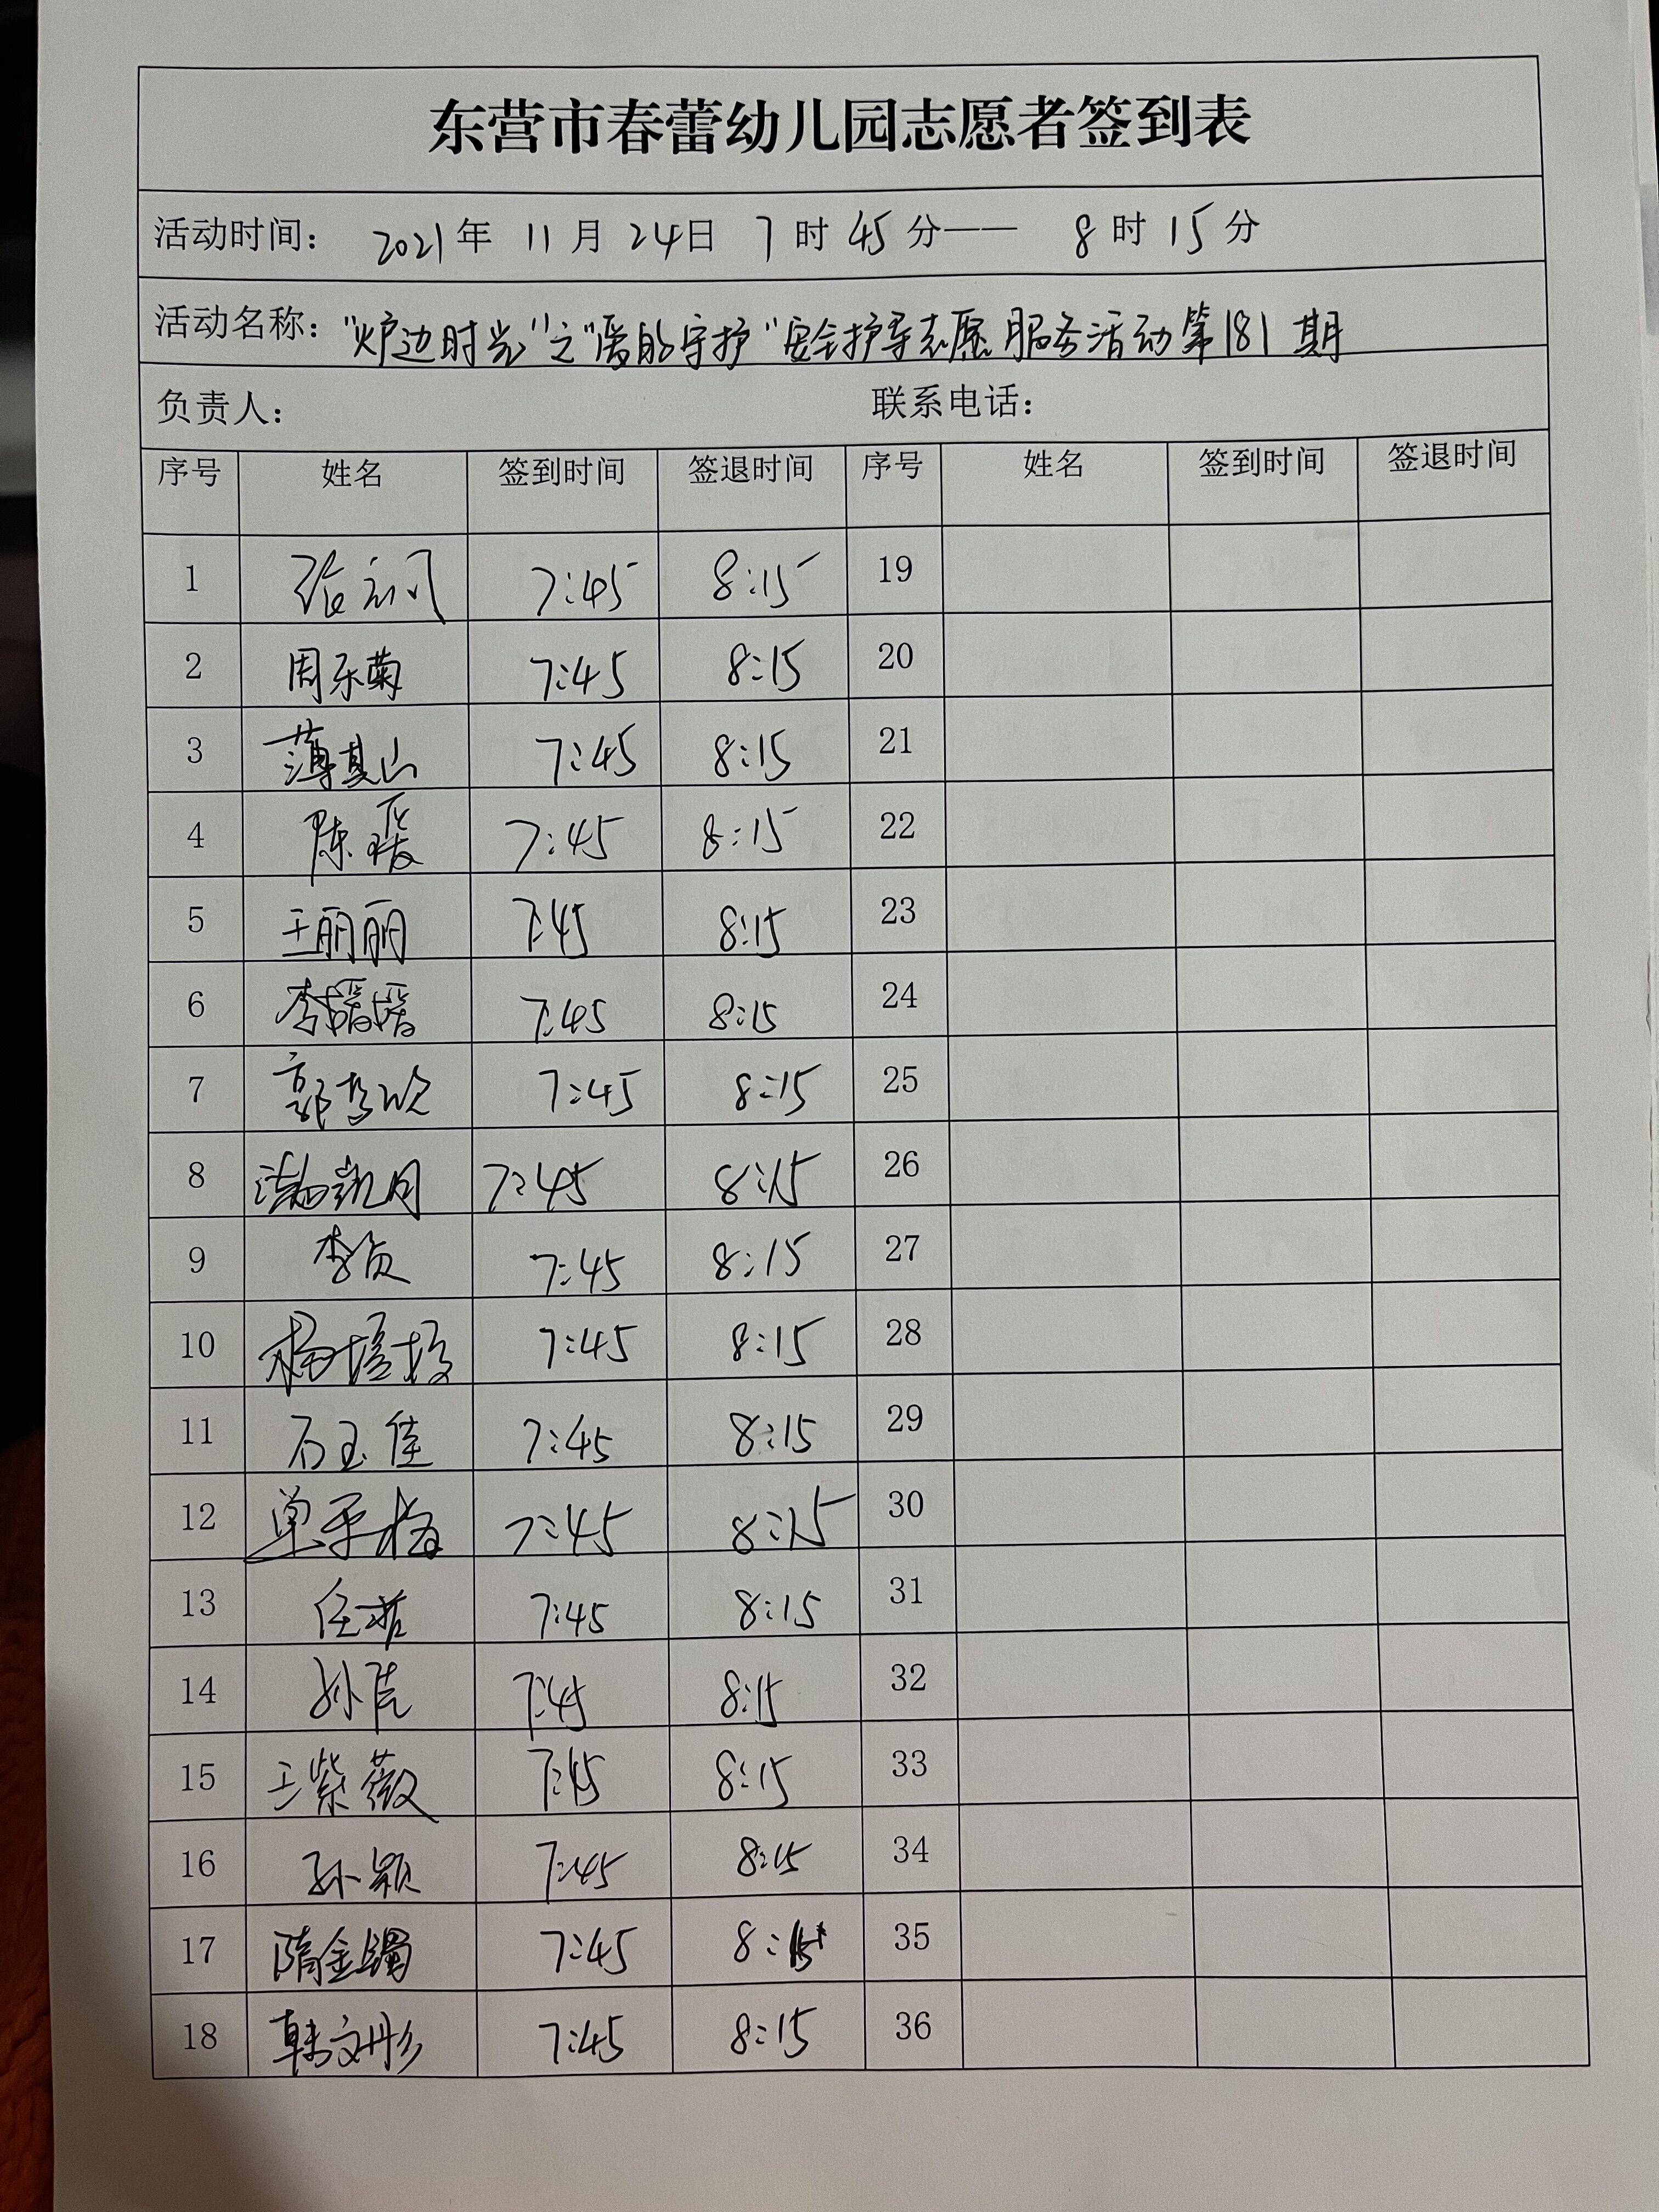 东营市春蕾幼儿园志愿者签到表
活动时间： 2021年 11月 24日 7时 45分—— 8时 15分
活动名称：“炉边时光”之“爱的守护”安全护导志愿服务活动第181期
负责人： 联系电话：
序号 姓名 签到时间 签退时间 序号 姓名 签到时间 签退时间
1 7:45 8:15 19
2 周乐菊 7:45 8:15 20
3 薄其山 7:45 8:15 21
4 陈瑗 7:45 8:15 22
5 王丽丽 7:45 8:15 23
6 李媛媛 7:45 8:15 24
7 郭 7:45 8:15 25
8 7:45 8:15 26
9 李贞 7:45 8:15 27
10 杨 7:45 8:15 28
11 石玉佳 7:45 8:15 29
12 单平梅 7:45 8:15 30
13 任 7:45 8:15 31
14 孙 7:45 8:15 32
15 王紫薇 7:45 8:15 33
16 孙颖 7:45 8:15 34
17 隋金镯 7:45 8:15 35
18 韩文彤 7:45 8:15 36